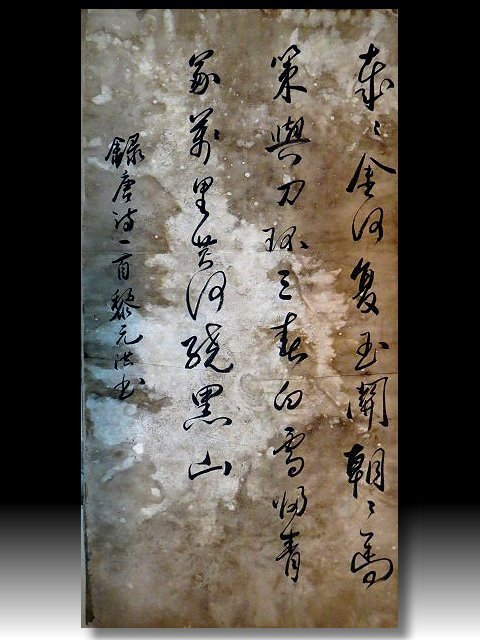 歲々金河复玉關朝々馬
策與刀环三春白雪歸青
冢萬里黃河繞黑山
錄唐詩一首黎元洪书